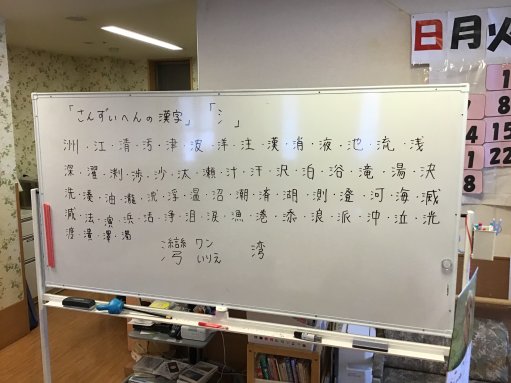 「さんずいへんの漢字」「氵」
洲・江・清・汚・津・波・洋・注・漢・消・液・池・流・浅
深・濯・渕・渉・沙・汰・瀬・汁・汗・沢・泊・浴・滝・湯・決
洗・湊・油・瀧・流・浮・温・沼・潮・済・湖・測・澄・河・海・減
滅・法・演・浜・活・浄・泪・涙・漁・港・添・浪・派・沖・泣・洸
渡・潰・澤・濁
灣 ワン 湾
いりえ
日月火
1
8
4 15
22
8